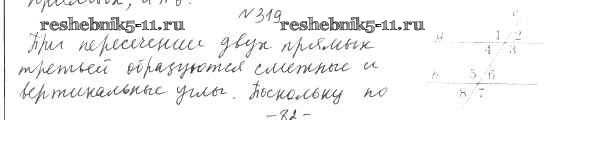 №319
reshebnik5-11.ru reshebnik5-11.ru
При пересечении двух прямых
третьей образуются смежные и
вертикальные углы. Поскольку по
- 82 -
1 2
4 3
5 6
8 7